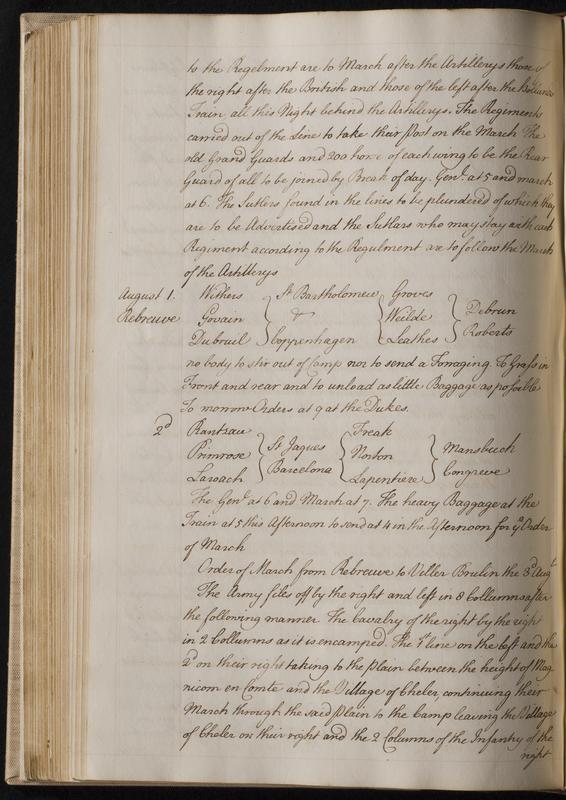 to the Regelment are to March after the Artillerys those of
the right after the British and those of the left after the Bollunes
Train, all this Night behind the Artillerys. The Regiments
carried out of the Line to take their Post on the March The
old Grand Guards and 200 horse of each wing to be the Rear
Guard of all to be joined by Break of day. Genl. at 5 and march
at 6. The Sutlers found in the lines to be plundered of which they
are to be Advertised and the Sutlars who may stay with each
Regiment according to the Regulment are to follow the March
of the Artillerys
August 1. Withers St. Bartholomew Groves
Rebreuve Govain & Weilde Debrun
Dubruil Coppenhagen Leathes Roberts
no body to stir out of Camp nor to send a Forraging. To Grass in
Front and rear and to unload as little Baggage as possible
To morrow Orders at 9 at the Dukes.
2d Rantzau Freak
Primrose St Jaques Norton Mansbuch
Laroach Barcelona Lapentiere Congreve
The Genl. at 6 and March at 7. The heavy Baggage at the
Train at 5 this Afternoon to send at 4 in the Afternoon for ye Order
of March
Order of March from Rebreuve to Viller Brulin the 3d Augt.
The Army files off by the right and left in 8 Collumns after
the following manner. The Cavalry of the right by the right
in 2 Collumns as it is encamped. The 1st line on the left and the
2d on their right taking to the Plain between the height of Mag
nicom en Comte and the Village of Cheler, continuing their
March through the said Plain to the Camp leaving the Village
of Cheler on their right and the 2 Columns of the Infantry of the
right